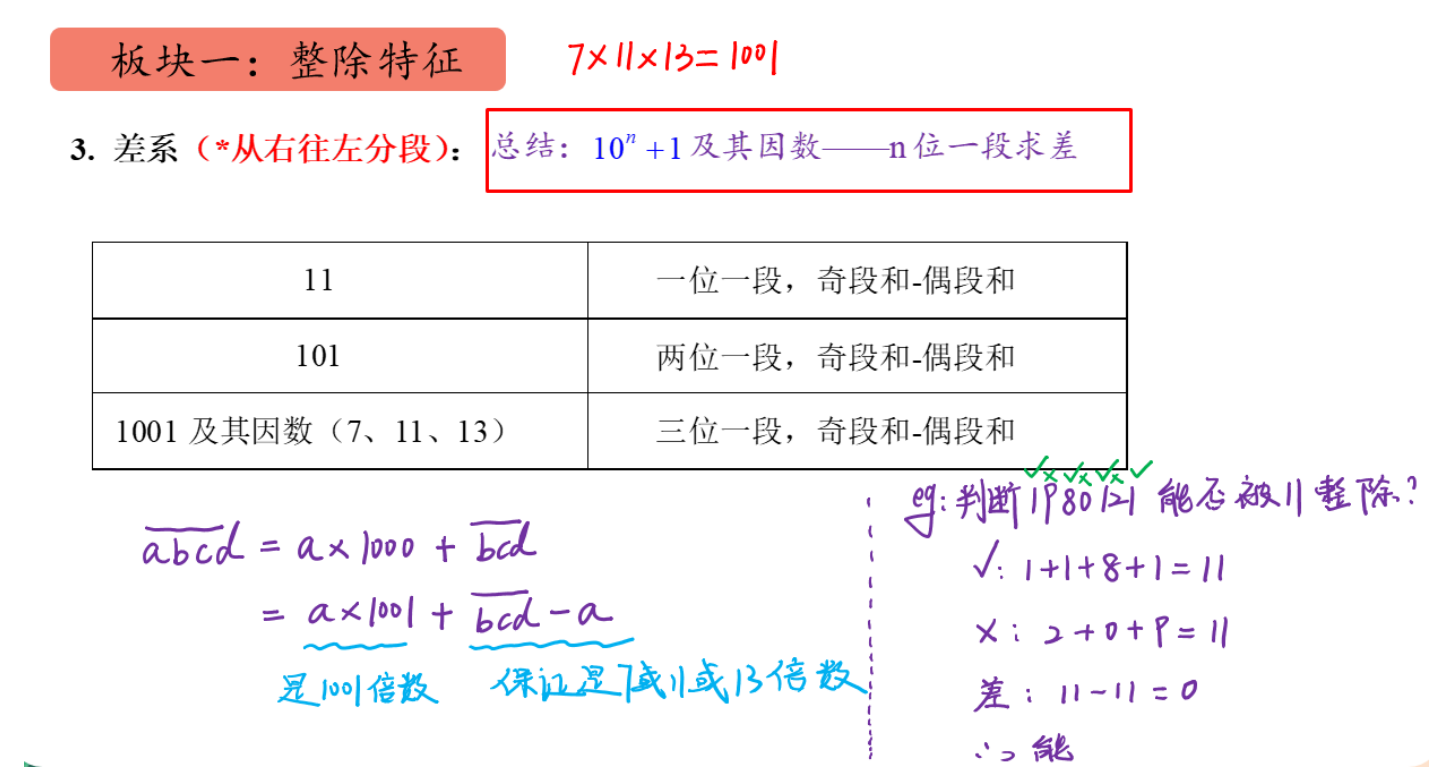 板块一：整除特征
7×11×13=1001
3. 差系（*从右往左分段）：
总结：10ⁿ+1及其因数——n位一段求差
11
一位一段，奇段和-偶段和
101
两位一段，奇段和-偶段和
1001 及其因数（7、11、13）
三位一段，奇段和-偶段和
abcd = a×1000 + bcd
= a×1001 + bcd-a
是1001倍数
保证是7或11或13倍数
✓×✓×✓×✓
eg: 判断1980121 能否被11整除?
✓: 1+1+8+1=11
×: 2+0+9=11
差: 11-11=0
∴ 能